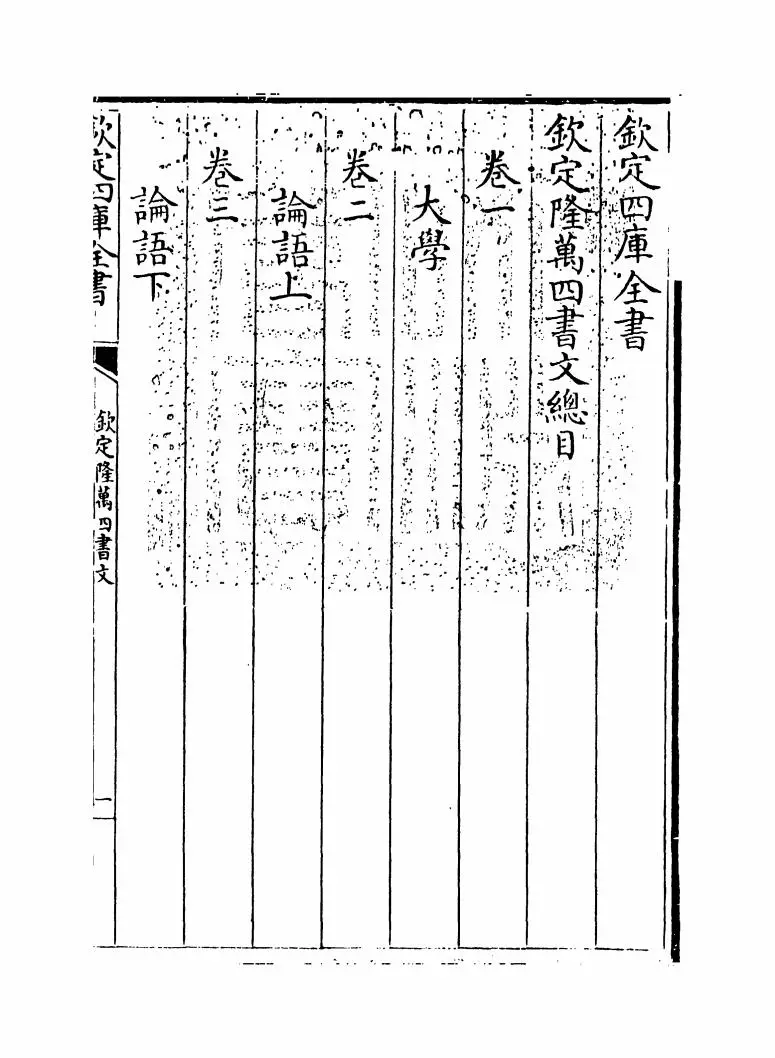 欽定四庫全書
欽定隆萬四書文總目
卷一
大學
卷二
論語上
卷三
論語下
欽定四庫全書
欽定隆萬四書文
一